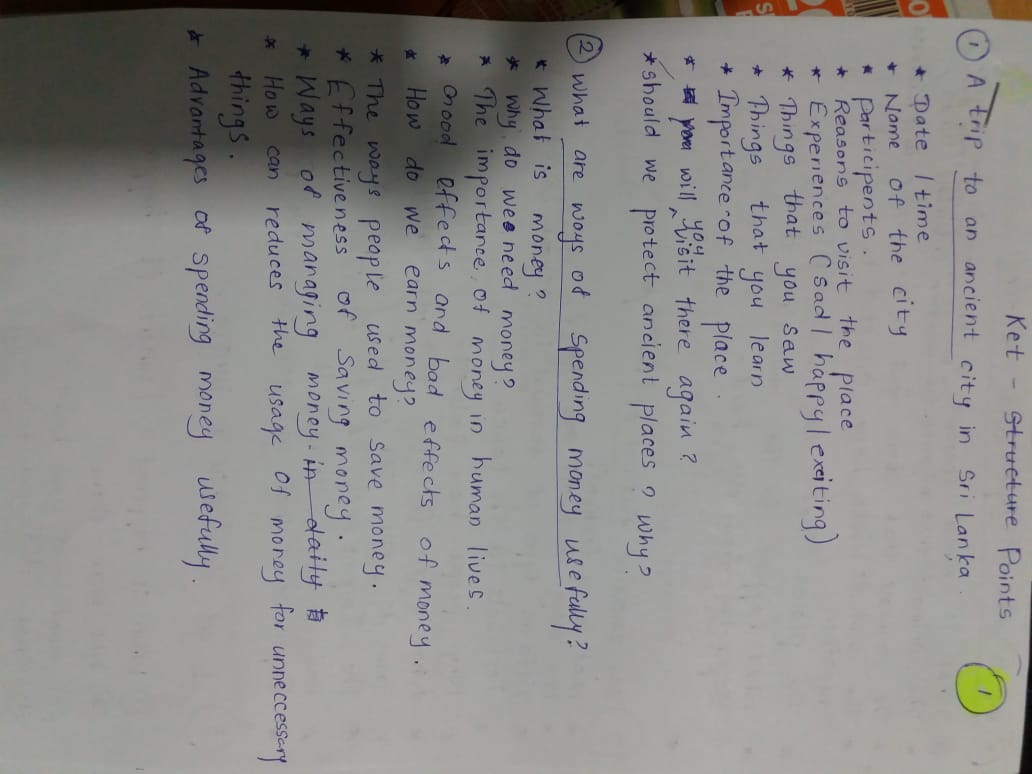 Ket - Structure Points
1
① A trip to an ancient city in Sri Lanka.
* Date / time
* Name of the city
* participents.
* Reasons to visit the place
* Experiences (sad / happy / exciting)
* Things that you saw
* Things that you learn
* Importance of the place.
* you will you visit there again?
* should we protect ancient places? why?
② what are ways of spending money usefully?
* What is money?
* why do we need money?
* The importance of money in human lives.
* Good effects and bad effects of money.
* How do we earn money?
* The ways people used to save money.
* Effectiveness of saving money.
* Ways of managing money. in daily
* How can reduces the usage of money for unneccessary
things.
* Advantages of spending money usefully.